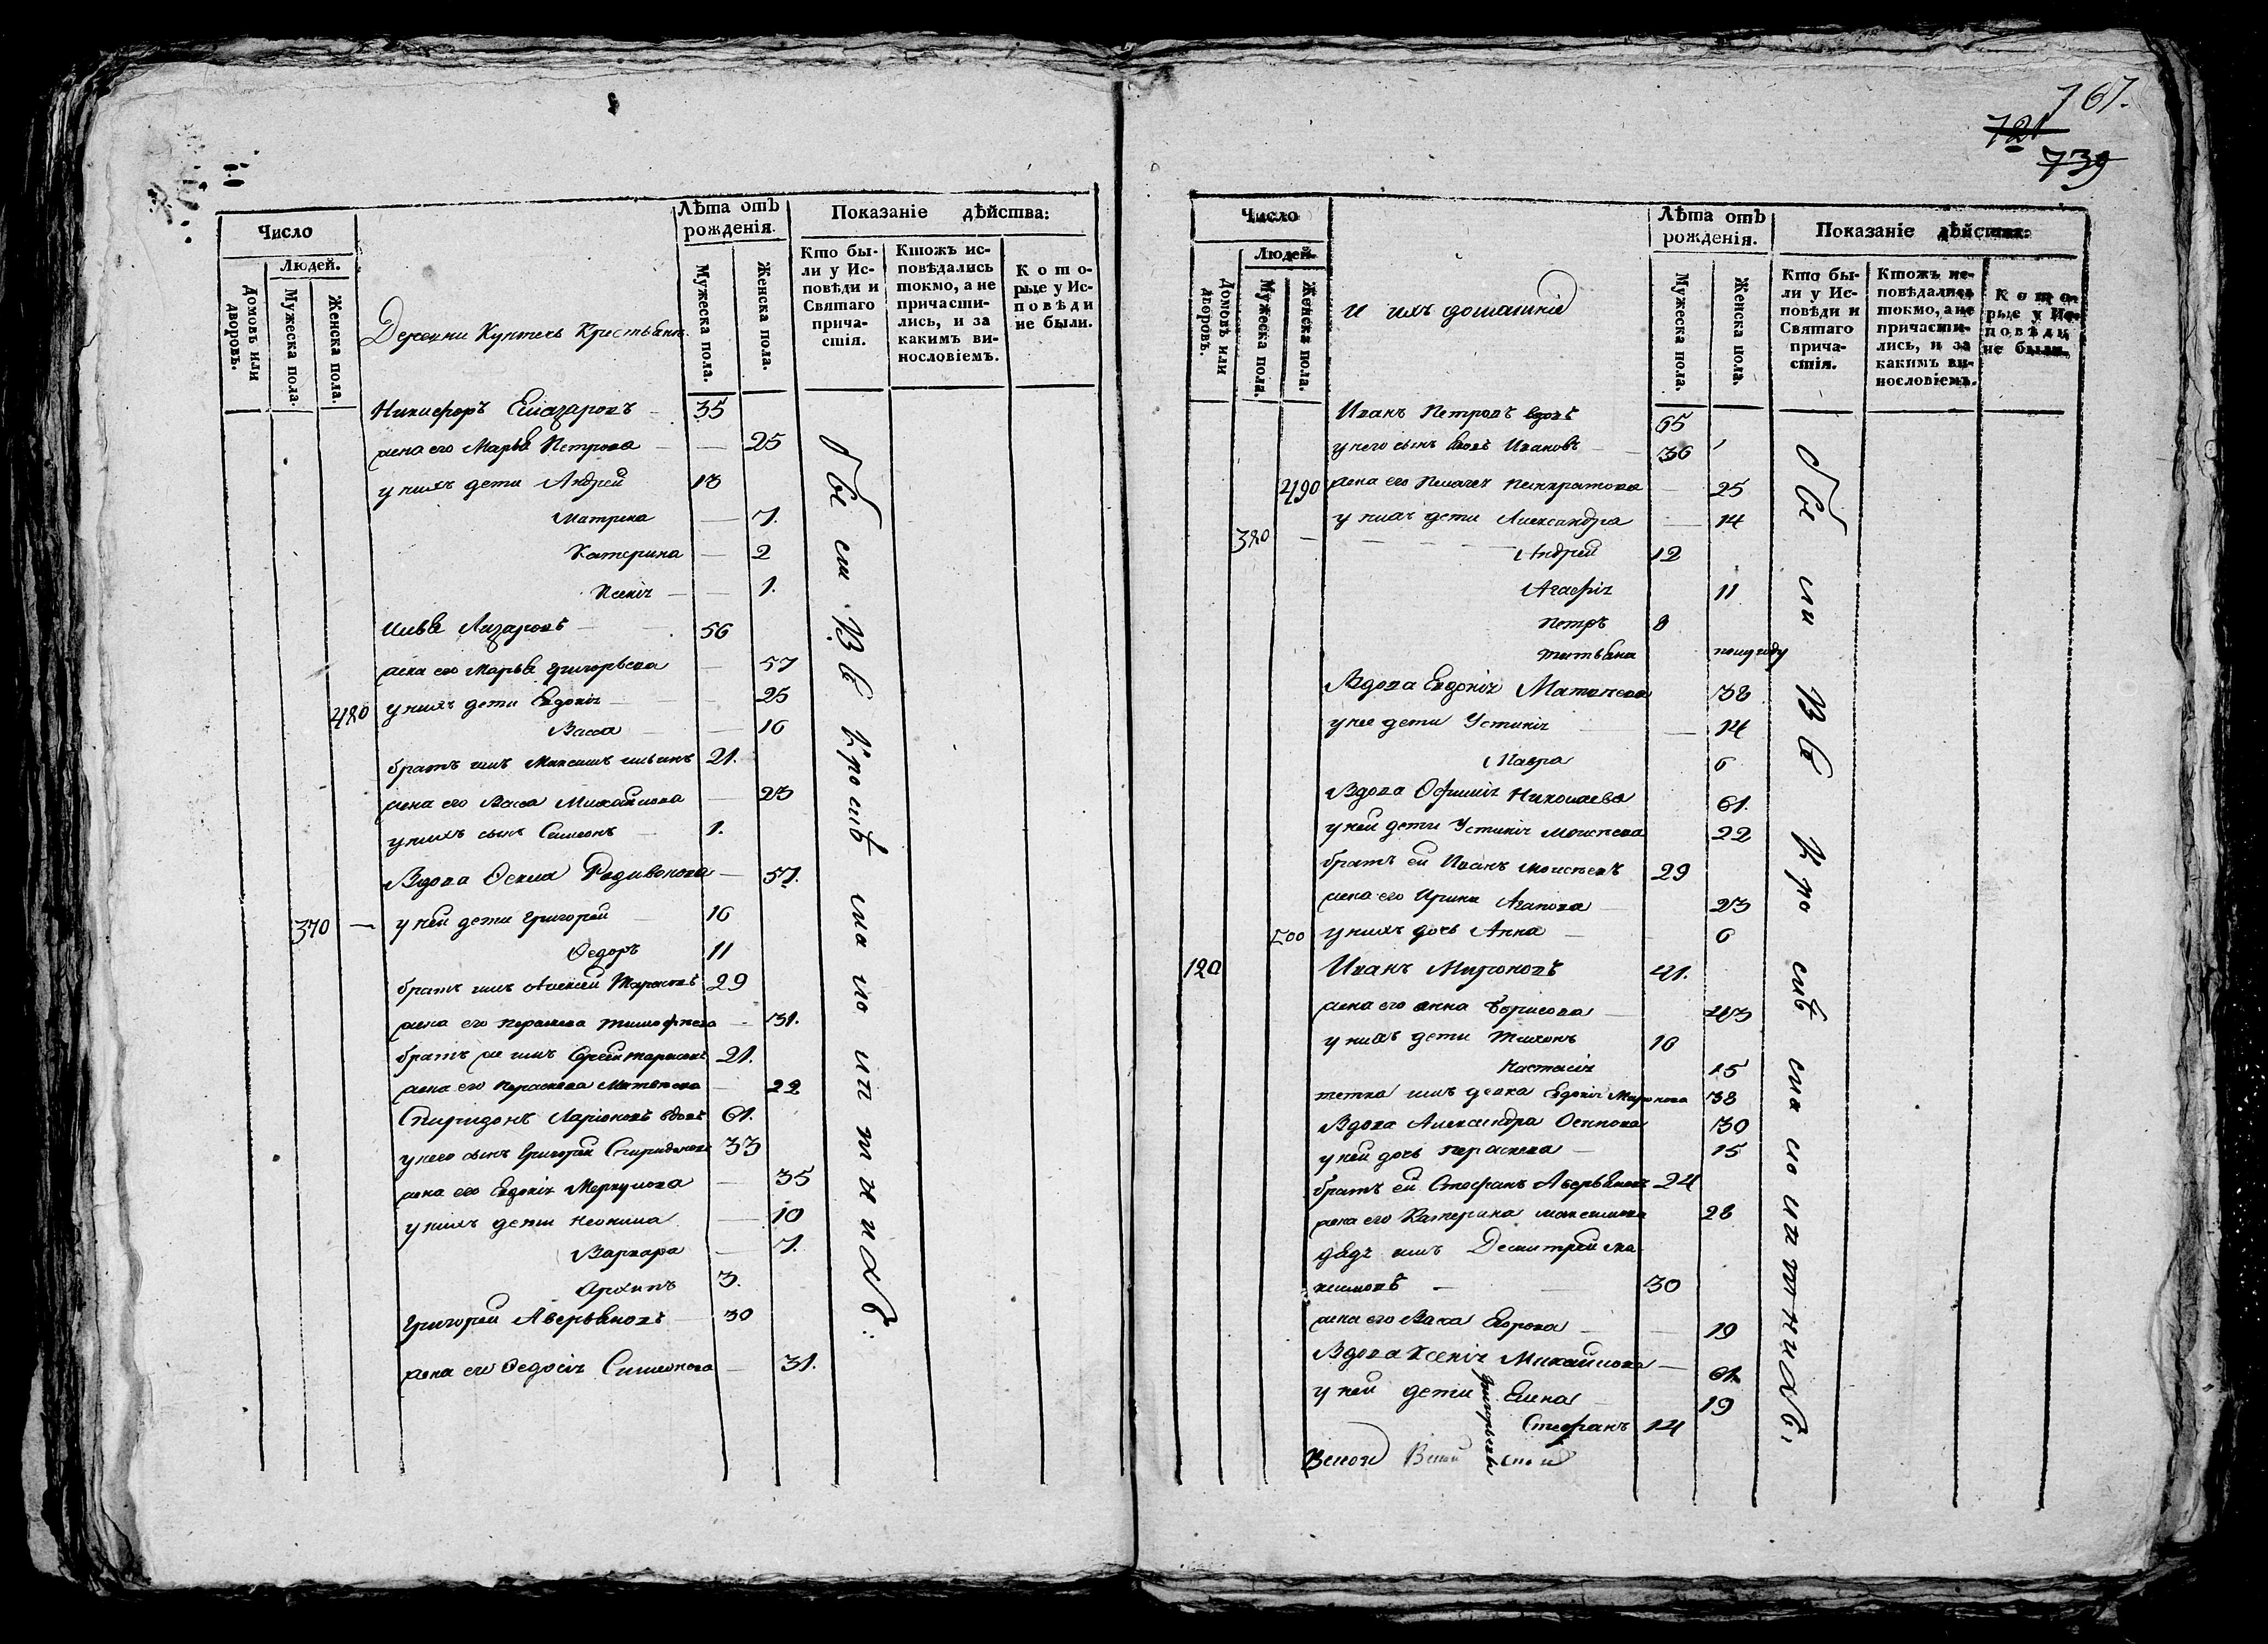 Число
Людей.
Домовъ или дворовъ.
Мужеска пола.
Женска пола.
Деревни Крестьяне
Лѣта отъ рожденія.
Мужеска пола.
Женска пола.
Показаніе дѣйства:
Кто бы-
ли у Ис-
повѣди и
Святаго
прича-
стія.
Ктожъ ис-
повѣдались
токмо, а не
причасти-
лись, и за
какимъ ви-
нословіемъ.
Кото-
рые у Ис-
повѣди
не были.
Никифоръ Елазаровъ 35
жена его Марья Петрова 25
у нихъ дети Андрей 13
Матрена 7.
Катерина 2
Ксенія 1.
Илья Лазаровъ 56
жена его Марья Григорьева 57
480 у нихъ дети Евдокія 25
Васса 16
братъ имъ Максимъ Ильинъ 21.
жена его Васса Михайлова 23
у нихъ сынъ Симеонъ 1.
Вдова Родивонова 57.
370 у ней дети Григорей 16
Ѳедоръ 11
братъ имъ Алексей Тарасовъ 29
жена его Параскева Тимофеева 31.
братъ же имъ Сергей Тарасовъ 21.
жена его Параскева Матвеева 22
Спиридонъ Ларіоновъ вдовъ 61.
у него сынъ Григорей Спиридоновъ 33
жена его Евдокія Меркулова 35
у нихъ дети Неонила 10
Варвара 7.
Архипъ 3.
Григорей Аверьяновъ 30
жена его Ѳедосія Симеонова 31.
были Все
767.
721
739
Число
Людей.
Домовъ или дворовъ.
Мужеска пола.
Женска пола.
и ихъ домашніе
Лѣта отъ рожденія.
Мужеска пола.
Женска пола.
Показаніе дѣйства:
Кто бы-
ли у Ис-
повѣди и
Святаго
прича-
стія.
Ктожъ ис-
повѣдались
токмо, а не
причасти-
лись, и за
какимъ ви-
нословіемъ.
Кото-
рые у Ис-
повѣди
не были.
Иванъ Петровъ вдовъ 65
у него сынъ Ивановъ 36
490 жена его Пелагея Панкратова 25
у нихъ дети Александра 14
380 Андрей 12
Агафія 11
Петръ 8
Татьяна полугоду
Вдова Евдокія Матвеева 38
у нее дети Устинія 14
Мавра 6
Вдова Офимія Николаева 61.
у ней дети Устинія Моисеева 22
братъ ей Иванъ Моисеевъ 29
жена его Ирина Агапова 23
500 у нихъ дочь Анна 6
120 Иванъ Мироновъ 41.
жена его Анна Борисова 43
у нихъ дети Тихонъ 10
Настасія 15
тетка имъ девка Евдокія Миронова 38
Вдова Александра Осипова 30
у ней дочь Параскева 15
братъ ей Стефанъ Аверьяновъ 24
жена его Катерина Максимова 28
дядя имъ Демитрей Ма-
ксимовъ 30
жена его Васса Егорова 19
Вдова Ксенія Михайлова 61.
у ней дети Елена 19
Григорьевы
Стефанъ 14
были Все